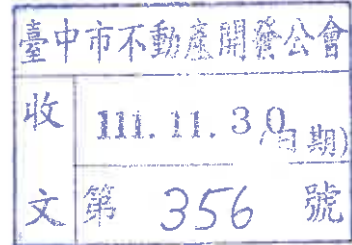 臺中市不動產開發公會
收 111. 11. 30 (日期)
文 第 356 號